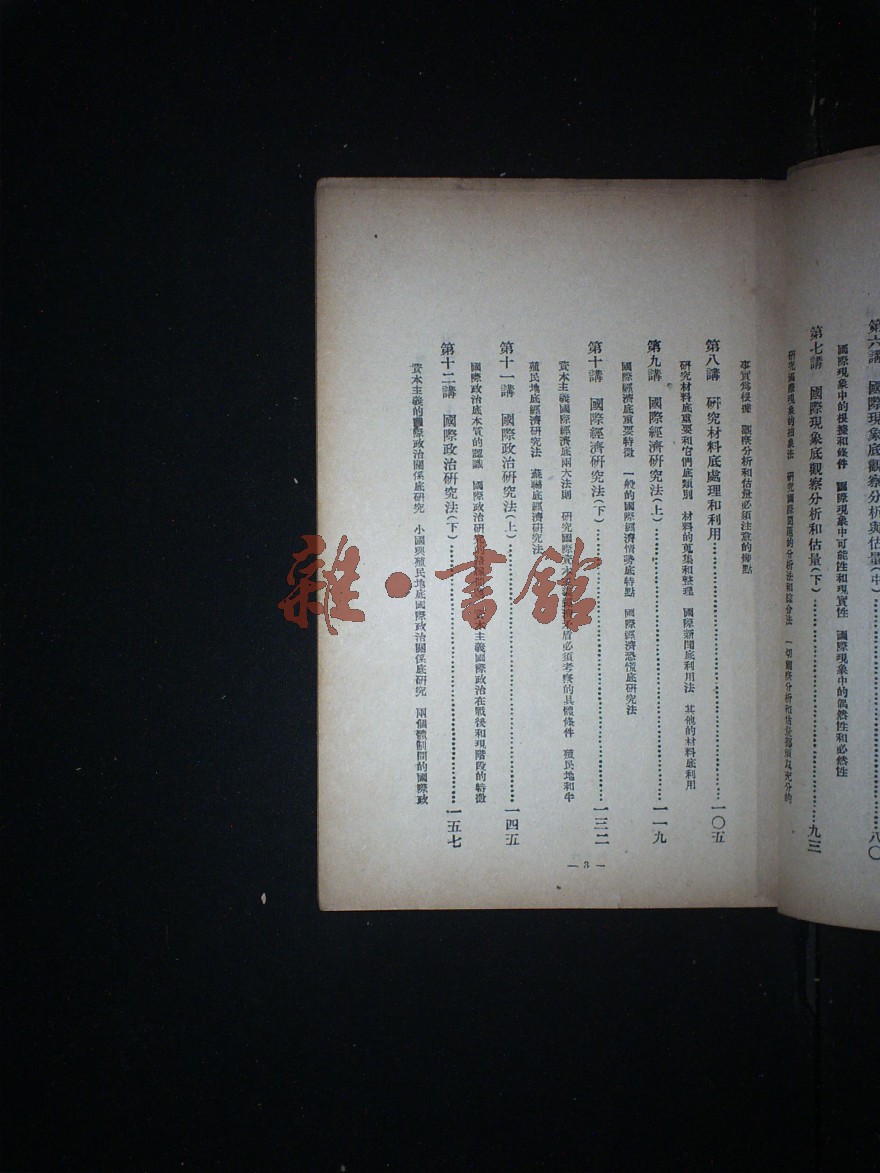 國際現象底觀察分析與估量(中)……八〇
國際現象中的根據和條件　國際現象中可能性和現實性　國際現象中的偶然性和必然性
第七講　國際現象底觀察分析和估量(下)……九三
研究國際現象的抽象法　研究國際問題的分析法和綜合法　一切觀察分析和估量都須以充分的
事實爲根據　觀察分析和估量必須注意的幾點
第八講　研究材料底處理和利用……一〇五
研究材料底重要和它們底類別　材料的蒐集和整理　國際新聞底利用法　其他的材料底利用
第九講　國際經濟研究法(上)……一一九
國際經濟底重要特徵　一般的國際經濟情勢底特點　國際經濟恐慌底研究法
第十講　國際經濟研究法(下)……一三二
資本主義國際經濟底兩大法則　研究國際資本主義經濟矛盾必須考察的具體條件　殖民地和半
殖民地底經濟研究法　蘇聯底經濟研究法
第十一講　國際政治研究法(上)……一四五
國際政治底本質的認識　國際政治研究　資本主義國際政治在戰後和現階段的特徵
第十二講　國際政治研究法(下)……一五七
資本主義的國際政治關係底研究　小國與殖民地底國際政治關係底研究　兩個體制間的國際政
— 3 —
雜·書館